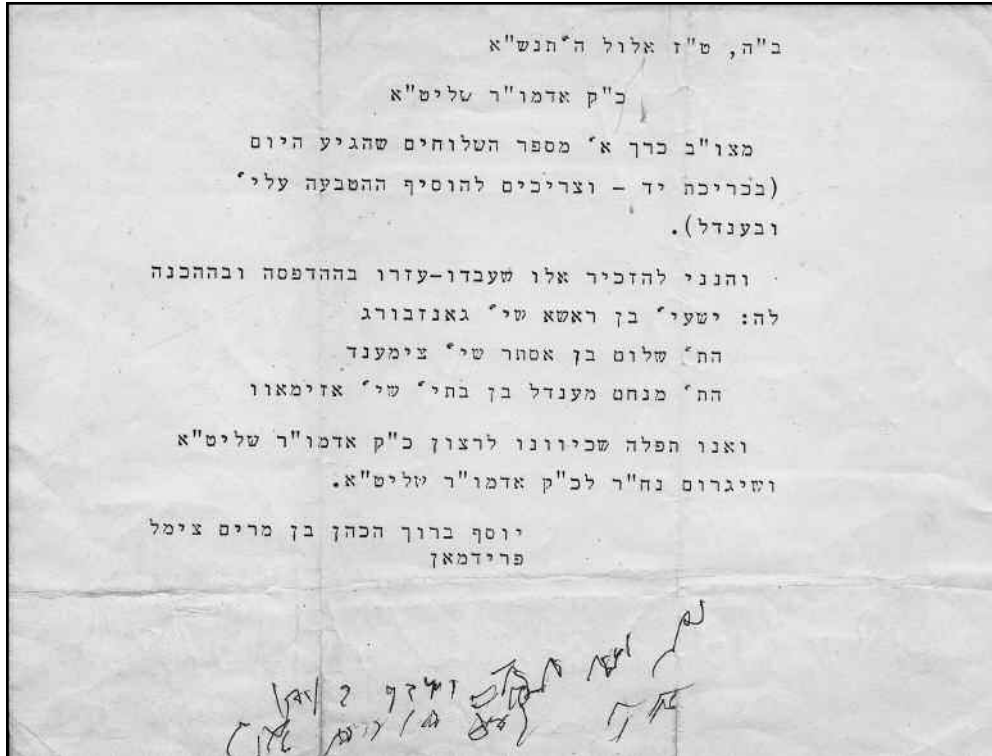 ב"ה, ט"ז אלול ה'תנש"א
כ"ק אדמו"ר שליט"א
מצו"ב כרך א' מספר השלוחים שהגיע היום
(בכריכת יד - וצריכים להוסיף ההטבעה עלי'
ובענדל).
והנני להזכיר אלו שעבדו-עזרו בההדפסה ובההכנה
לה: ישעי' בן ראשא שי' גאנזבורג
הת' שלום בן אסתר שי' צימענד
הת' מנחם מענדל בן בתי' שי' אזימאוו
ואנו תפלה שכיוונו לרצון כ"ק אדמו"ר שליט"א
ושיגרום נח"ר לכ"ק אדמו"ר שליט"א.
יוסף ברוך הכהן בן מרים צימל
פרידמאן